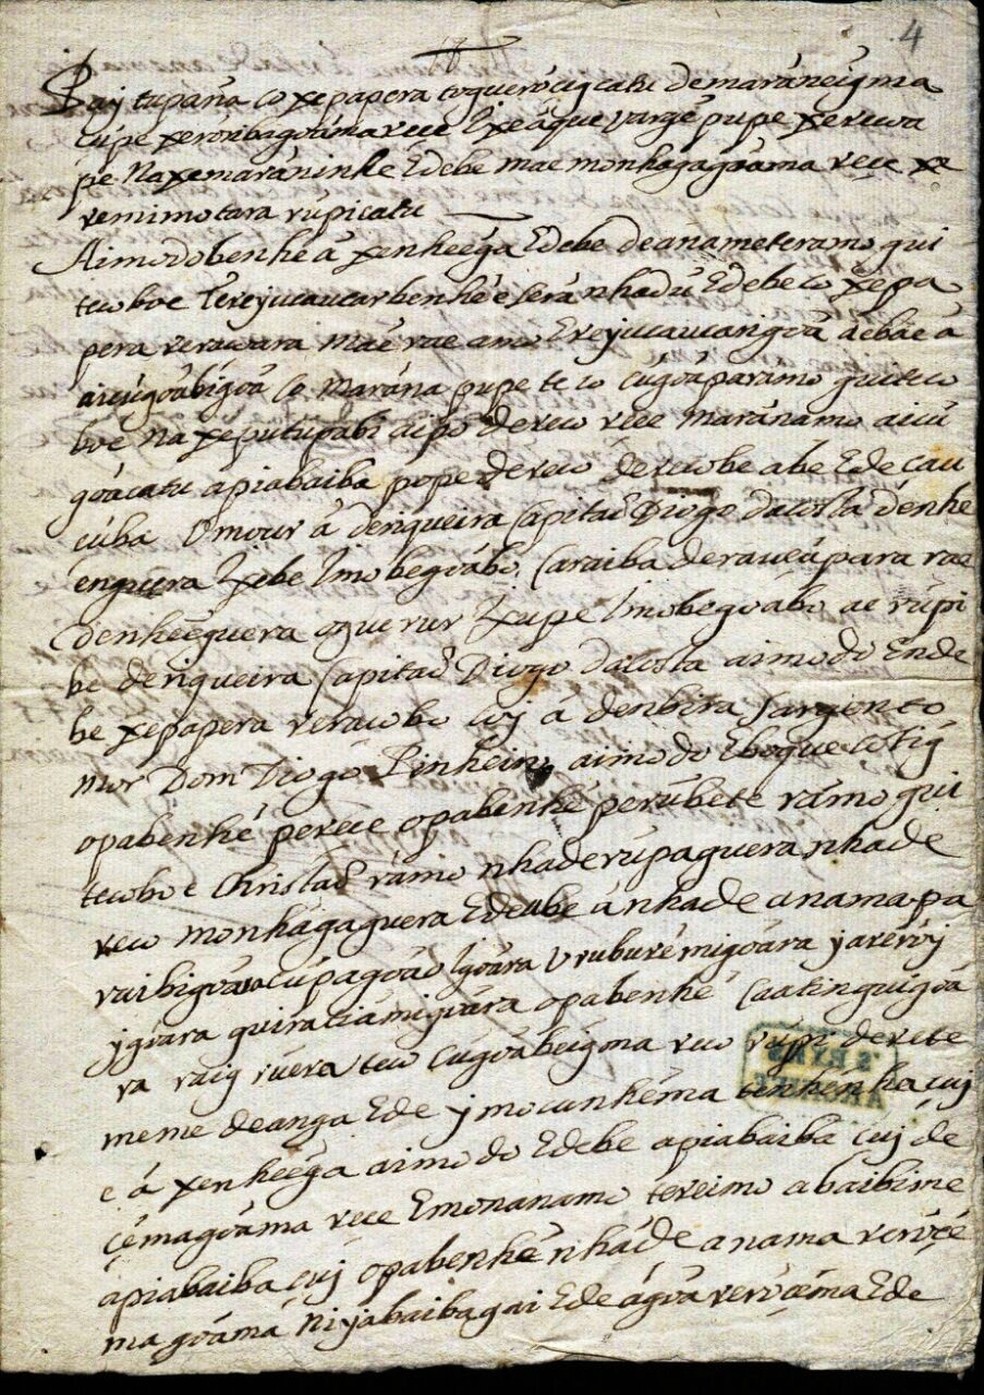 4
Pay tupaña co xepapera toguerocig catu demarãneigma
cupe xeroribagoãma rece Ixe ãque Vargẽ pupe xerecoa
pe Naxemarãninhe Edebe mae monhagagoãma rece xe
remimotara rupicatu
Aimodobenhe ã xenheẽga Edebe deanameteramo qui
tecoboe Terejucaucarbenhẽ e serã nhadũ Edebe co xepa
pera reracoara maẽ rae amo Erejucaucarigoã aebae ã
co marãna pupe teco guiteco
boe Na xeputupabi aipo dereco rece marãnamo aicu
goacatu apiabaiba pope dereco derecobe abe Ede cau
cuba Omour ã deriqueira Capitaõ Diogo dacosta denhe
enguera Ixebe Imobegoabo, Caraiba deraucupara rae
denheẽguera oguerur Ixupe Imobegoabo ae rupi
be deriqueira Capitaõ Diogo dacosta aimodo Ende
be xepapera reracobo coj ã denbira Sargento
mor Dom Diogo Pinheiro aimodo Eboque cotig
opabenhẽ perece opabenhẽ perũbete rãmo gui
tecoboe Christaõ rãmo nhaderũpaguera nhade
reco monhagaguera Edeube ã nhade anama pa
raibigoãra cupagoao Igoãra Vruburemigoãra yareroj
ygoara quiratiamigoãra opabenhẽ Caatinguigoã
ra raig ruera teco cugoabeigma reco rupi derete
meme deanga Ede ymocanhẽma tenhen ha cuj
e ã xenheẽga aimodo Edebe apiabaiba cuj de
cẽmagoãma rece Emonanamo tereimo abaibime
apiabaiba cuj opabenhẽ nhãde anama rerocẽ
magoãma niyabaibagai Ede ãgoa rerocẽma Ede